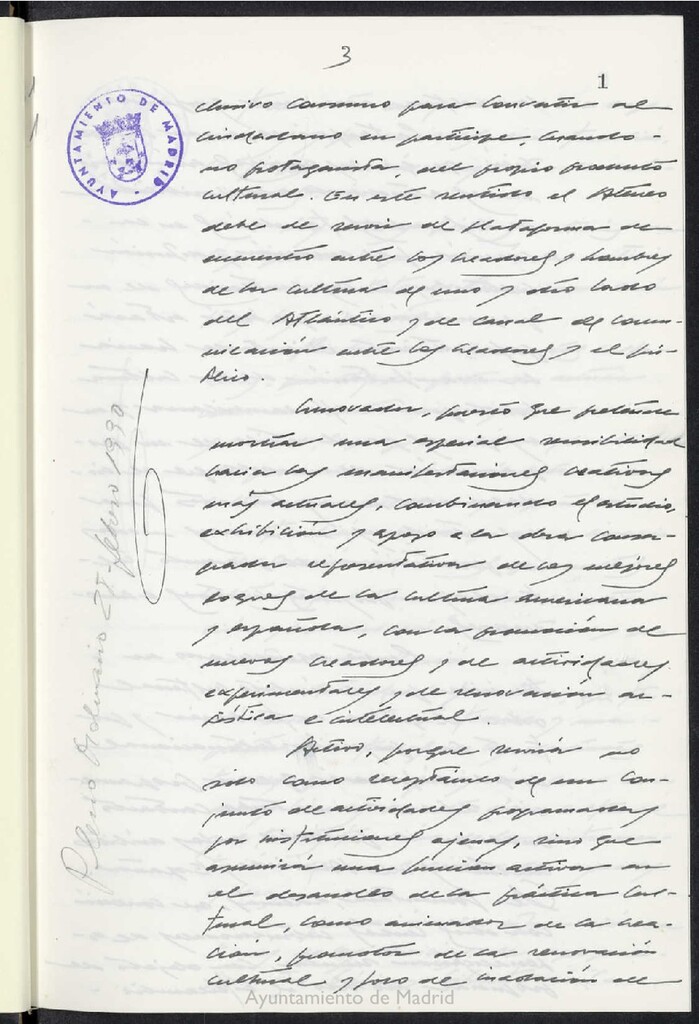 3
1
AYUNTAMIENTO DE MADRID
clusivo camino para convertir al
ciudadano en partícipe, cuando
no protagonista, del propio producto
cultural. En este sentido el Ateneo
debe de servir de plataforma de
encuentro entre los creadores y hombres
de la cultura de uno y otro lado
del Atlántico y de canal de comu-
nicación entre los creadores y el pú-
blico.
Innovador, puesto que pretende
mostrar una especial sensibilidad
hacia las manifestaciones creativas
más actuales, combinando el estudio,
exhibición y apoyo a la obra consa-
grada representativa de los mejores
logros de la cultura americana
y española, con la promoción de
nuevos creadores y de actividades
experimentales y de renovación ar-
tística e intelectual.
Activo, porque servirá no
sólo como receptáculo de un con-
junto de actividades programadas
por instituciones ajenas, sino que
asumirá una función activa en
el desarrollo de la práctica cul-
tural, como animador de la crea-
ción, promotor de la renovación
cultural y foro de incitación de
Pleno Ordinario 27-febrero 1990
Ayuntamiento de Madrid